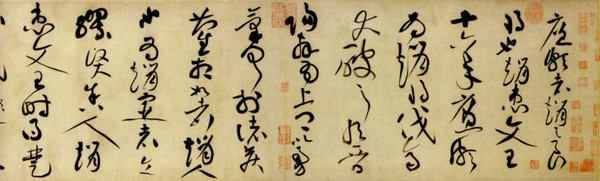 廉頗者趙之良
將也趙惠文王
十六年廉頗
為趙將伐齊
大破之取晉
陽拜為上卿以勇
氣聞於諸侯
藺相如者趙人
也為趙宦者令
繆賢舍人趙
惠文王時得楚